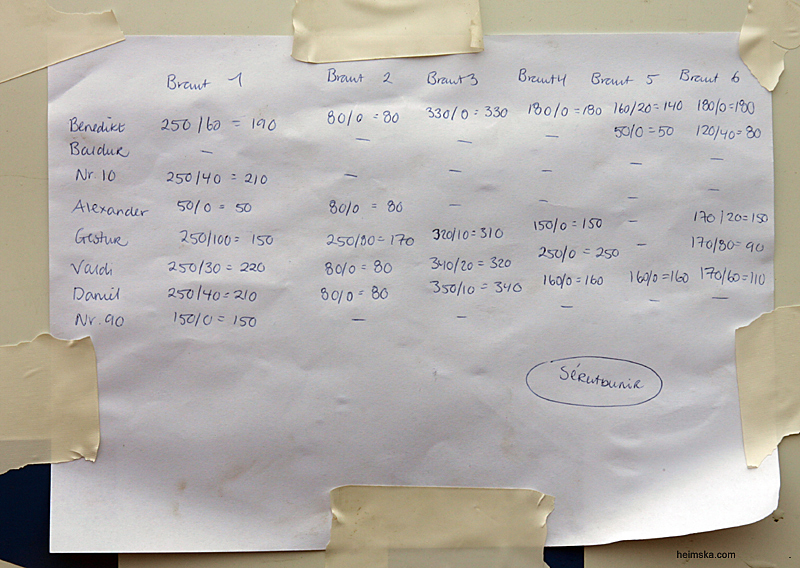 Braut 1 Braut 2 Braut 3 Braut 4 Braut 5 Braut 6
Benedikt 250/60 = 190 80/0 = 80 330/0 = 330 180/0 = 180 160/20 = 140 180/0 = 180
Baldur — — — — 50/0 = 50 120/40 = 80
Nr. 10 250/40 = 210 — — — — —
Alexander 50/0 = 50 80/0 = 80 — — — —
Gestur 250/100 = 150 250/80 = 170 320/10 = 310 150/0 = 150 — 170/20 = 150
Valdi 250/30 = 220 80/0 = 80 340/20 = 320 250/0 = 250 — 170/80 = 90
Daníel 250/40 = 210 80/0 = 80 350/10 = 340 160/0 = 160 160/0 = 160 170/60 = 110
Nr. 90 150/0 = 150 — — — — —
Sérútbúnir
heimska.com